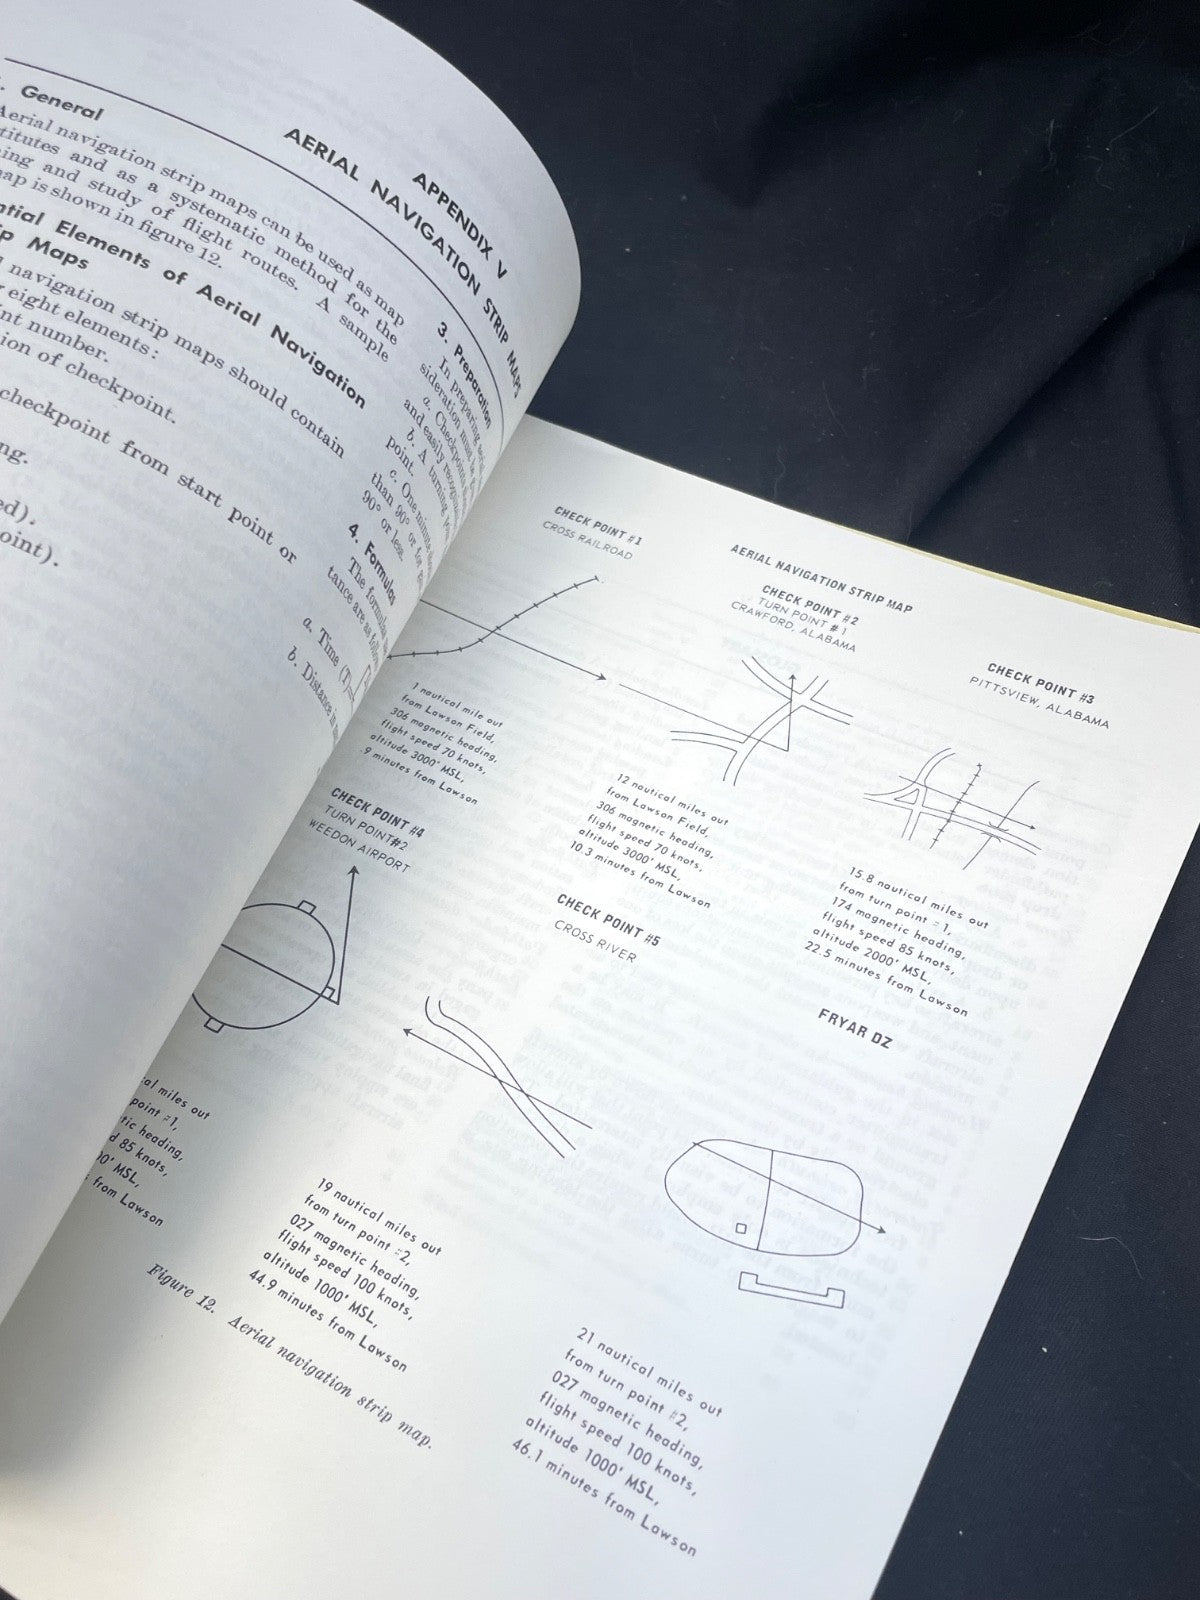 APPENDIX V
AERIAL NAVIGATION STRIP MAPS
General
Aerial navigation strip maps can be used as map
and as a systematic method for the
and study of flight routes. A sample
is shown in figure 12.
Elements of Aerial Navigation
Maps
navigation strip maps should contain
eight elements:
number.
of checkpoint.
checkpoint from start point or
3. Preparation
In preparing
must be
a. Checkpoints
and easily
b. A turning
point.
c. One minute
than 90° or for
90° or less.
4. Formulas
The formulas
are as
a. Time (T)=
b. Distance
AERIAL NAVIGATION STRIP MAP
CHECK POINT #1
CROSS RAILROAD
1 nautical mile out
from Lawson Field,
306 magnetic heading,
flight speed 70 knots,
altitude 3000' MSL,
.9 minutes from Lawson
CHECK POINT #2
TURN POINT #1
CRAWFORD, ALABAMA
12 nautical miles out
from Lawson Field,
306 magnetic heading,
flight speed 70 knots,
altitude 3000' MSL,
10.3 minutes from Lawson
CHECK POINT #3
PITTSVIEW, ALABAMA
15.8 nautical miles out
from turn point #1,
174 magnetic heading,
flight speed 85 knots,
altitude 2000' MSL,
22.5 minutes from Lawson
CHECK POINT #4
TURN POINT #2
WEEDON AIRPORT
miles out
point #1,
heading,
85 knots,
MSL,
from Lawson
CHECK POINT #5
CROSS RIVER
19 nautical miles out
from turn point #2,
027 magnetic heading,
flight speed 100 knots,
altitude 1000' MSL,
44.9 minutes from Lawson
FRYAR DZ
21 nautical miles out
from turn point #2,
027 magnetic heading,
flight speed 100 knots,
altitude 1000' MSL,
46.1 minutes from Lawson
Figure 12. Aerial navigation strip map.